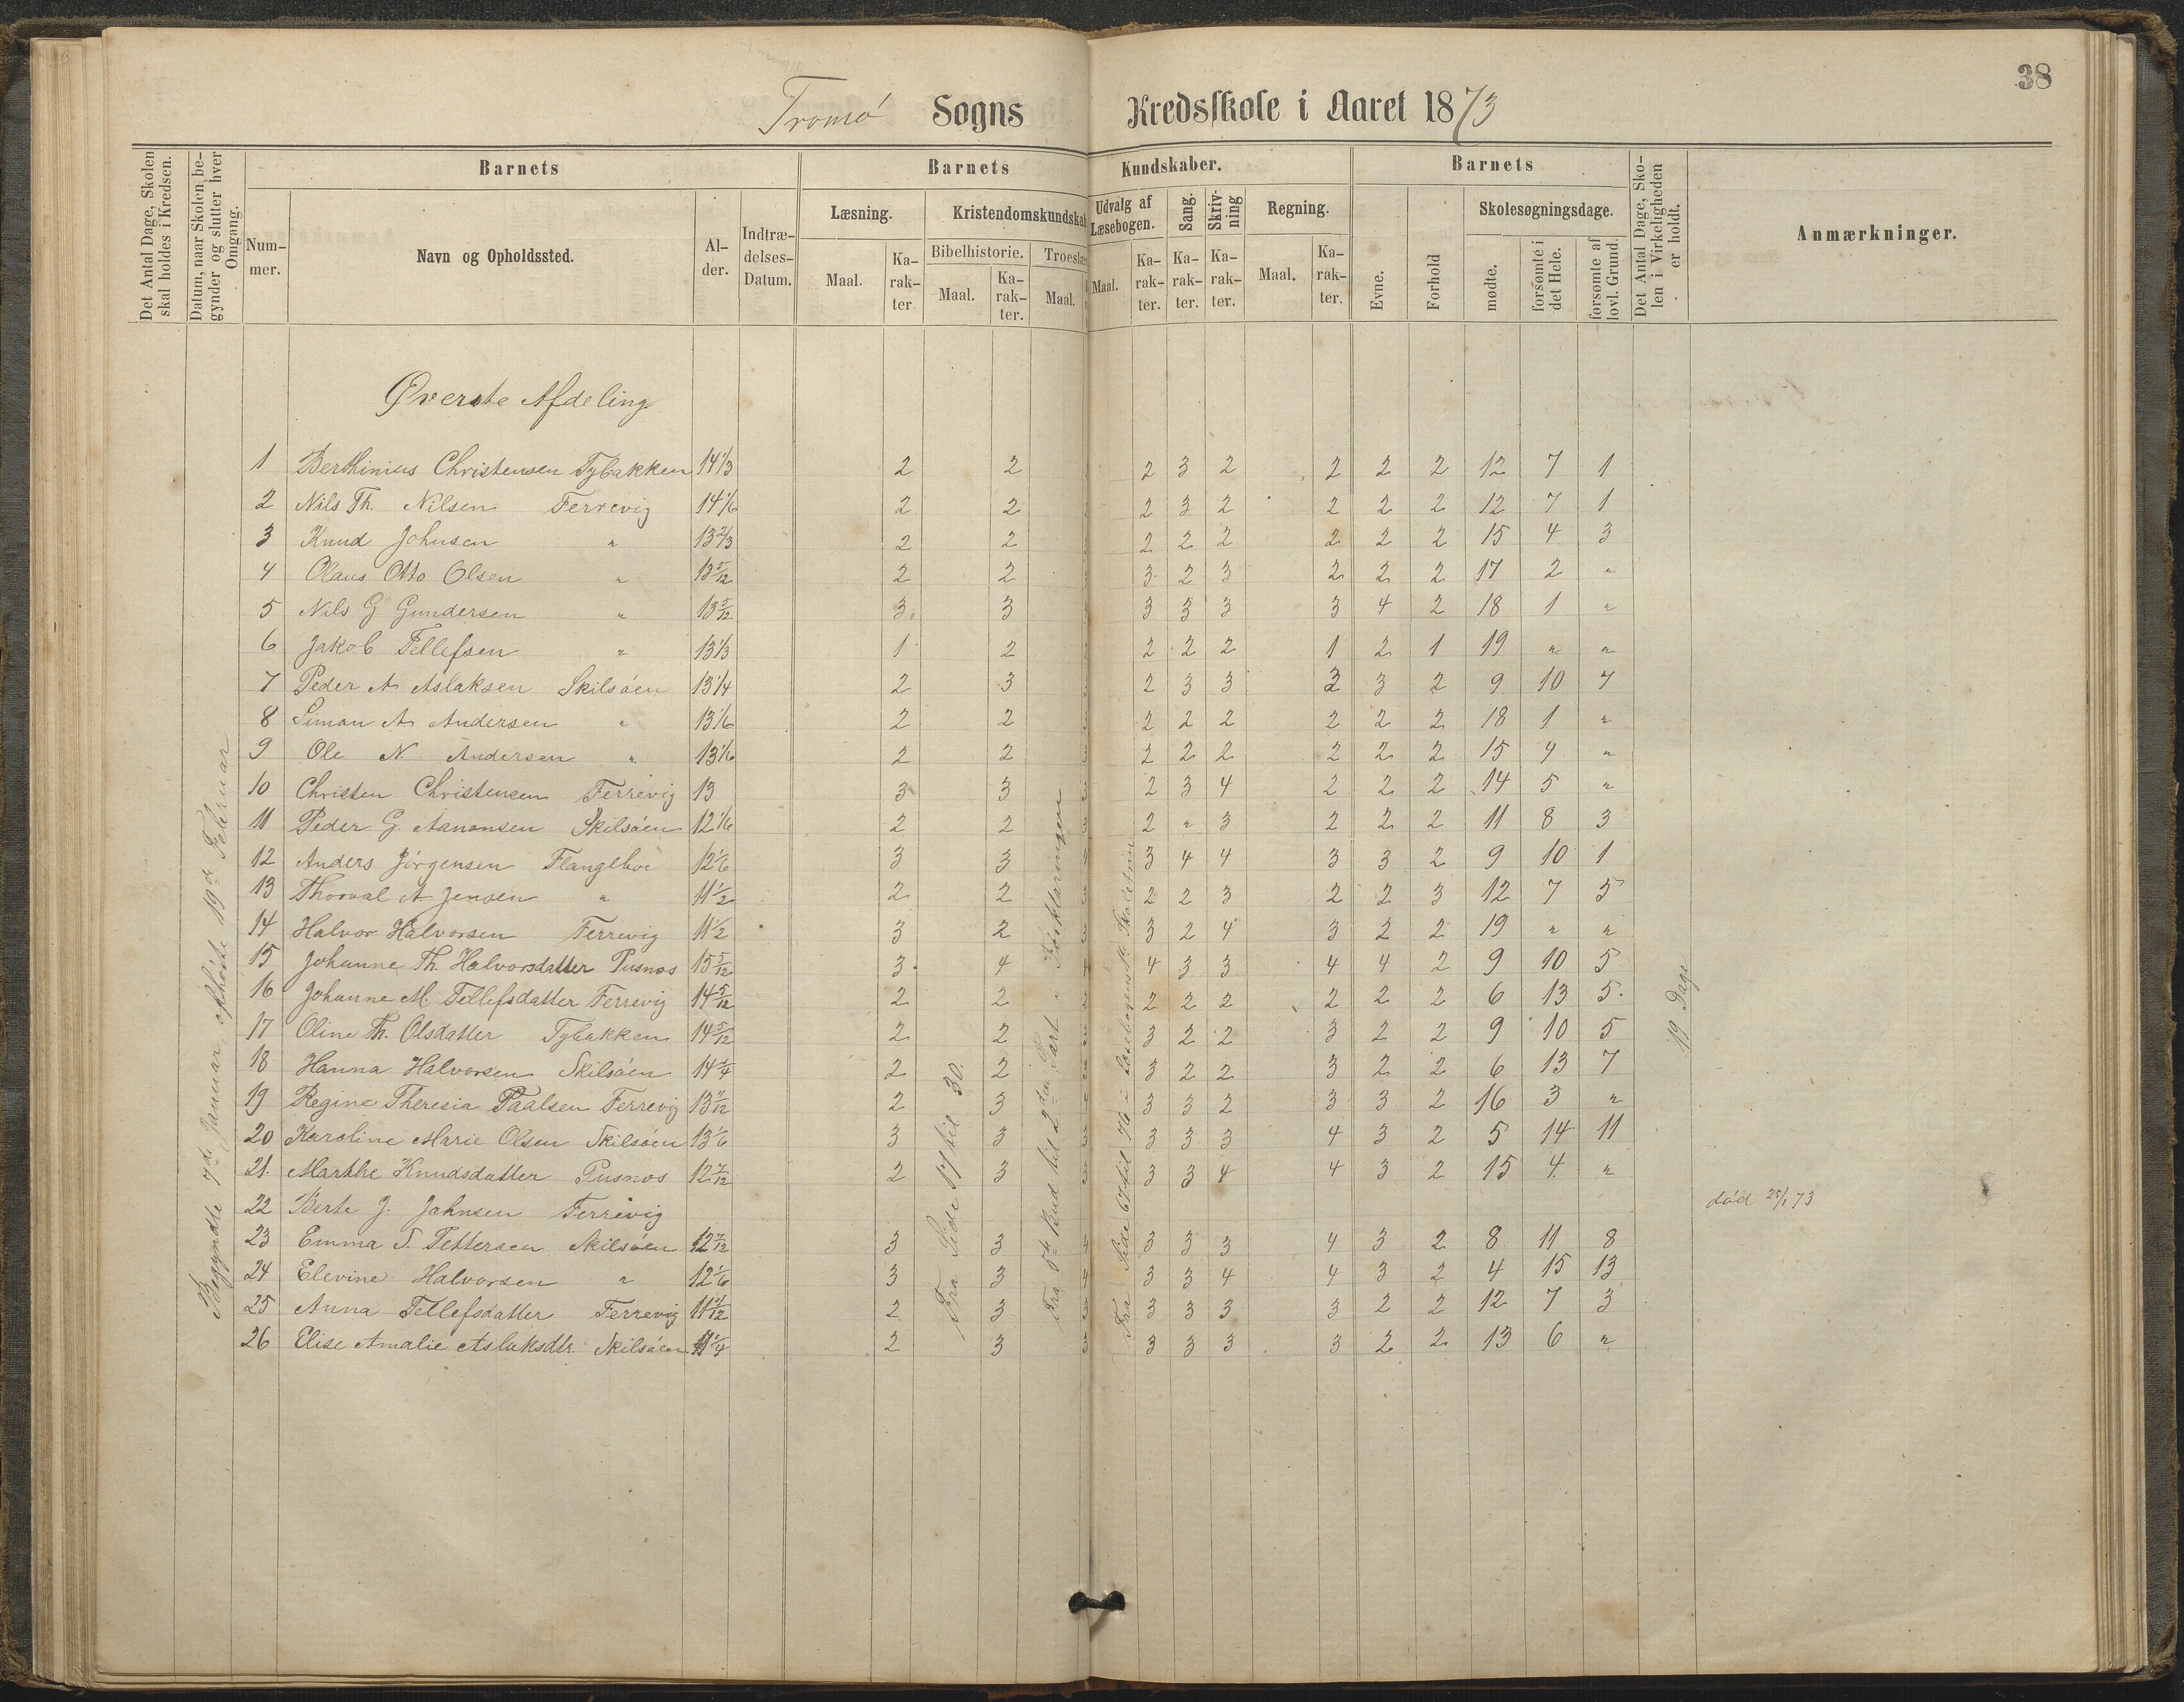 38
Tromø Sogns Kredsskole i Aaret 1873
Det Antal Dage, Skolen skal holdes i Kredsen.
Datum, naar Skolen begynder og slutter hver Omgang.
Barnets
Barnets Kundskaber.
Barnets
Det Antal Dage, Skolen i Virkeligheden er holdt.
Anmærkninger.
Nummer.
Navn og Opholdssted.
Alder.
Indtrædelses-Datum.
Læsning.
Kristendomskundskab
Udvalg af Læsebogen.
Sang.
Skrivning
Regning.
Evne.
Forhold
Skolesøgningsdage.
Bibelhistorie.
Troeslær
Maal.
Karakter
Maal.
Karakter.
Maal.
Maal.
Karakter.
Karakter.
Karakter.
Maal.
Karakter.
mødte.
forsømte i det Hele.
forsømte af lovl. Grund.
Øverste Afdeling
1 Berthinius Christensen Tybakken 14 1/3 2 2 2 3 2 2 2 2 12 7 1
2 Nils Th. Nilsen Ferrevig 14 1/6 2 2 2 3 2 2 2 2 12 7 1
3 Knud Johnsen " 13 2/3 2 2 2 2 2 2 2 2 15 4 3
4 Olaus Otto Olsen " 13 5/12 2 2 3 2 3 2 2 2 17 2 "
5 Nils G Gundersen " 13 5/12 3 3 3 3 3 3 4 2 18 1 "
6 Jakob Tellefsen " 13 1/3 1 2 2 2 2 1 2 1 19 " "
7 Peder A Aslaksen Skilsøen 13 1/4 2 3 2 3 3 3 3 2 9 10 7
8 Simon A Andersen " 13 1/6 2 2 2 2 2 2 2 2 18 1 "
9 Ole N. Andersen " 13 1/6 2 2 2 2 2 2 2 2 15 4 "
10 Christen Christensen Ferrevig 13 3 3 2 3 4 2 2 2 14 5 "
11 Peder G. Aanonsen Skilsøen 12 1/6 2 2 3 2 " 3 2 2 2 11 8 3
12 Anders Jørgensen Flangehve 12 1/6 3 3 3 4 4 3 3 2 9 10 1
13 Thorval A Jensen " 11 1/2 2 2 3 2 2 3 2 2 3 12 7 5
14 Halvor Halvorsen Ferrevig 11 1/2 3 2 3 3 2 4 3 2 2 19 " "
15 Johanne Th. Halvorsdatter Pusnos 15 5/12 3 4 4 4 3 3 4 4 2 9 10 5
16 Johanne M. Tellefsdatter Ferrevig 14 5/12 2 2 2 2 2 2 2 2 2 6 13 5
17 Oline Th. Olsdatter Tybakken 14 5/12 2 2 3 2 2 3 2 2 9 10 5
18 Hanna Halvorsen Skilsøen 14 1/4 2 2 3 2 2 3 2 2 6 13 7
19 Regine Theresia Paalsen Ferrevig 13 11/12 2 3 3 3 2 3 3 2 16 3 "
20 Karoline Marie Olsen Skilsøen 13 1/6 3 3 3 3 3 3 4 3 2 5 14 11
21. Marthe Knudsdatter Pusnos 12 7/12 2 3 3 3 3 4 4 3 2 15 4 "
22 Berte J. Jahnsen Ferrevig død 25/1 73
23 Emma S. Tettersen Skilsøen 12 7/12 3 3 4 3 3 3 4 3 2 8 11 8
24 Elevine Halvorsen " 12 1/6 3 3 4 3 3 4 4 3 2 4 15 13
25 Anna Tellefsdatter Ferrevig 11 11/12 2 3 3 3 3 3 3 2 2 12 7 3
26 Elise Amalie Aslaksdtr. Skilsøen 11 1/4 2 3 3 3 3 3 3 2 2 13 6 "
Begyndte 7de Januar, ophørte 19de Februar
Fra Side 17 til 30.
Fra 5te Bud til 2den Part " Forklaringen
Fra Side 67 til 76 i Læsebogens
19 Dage